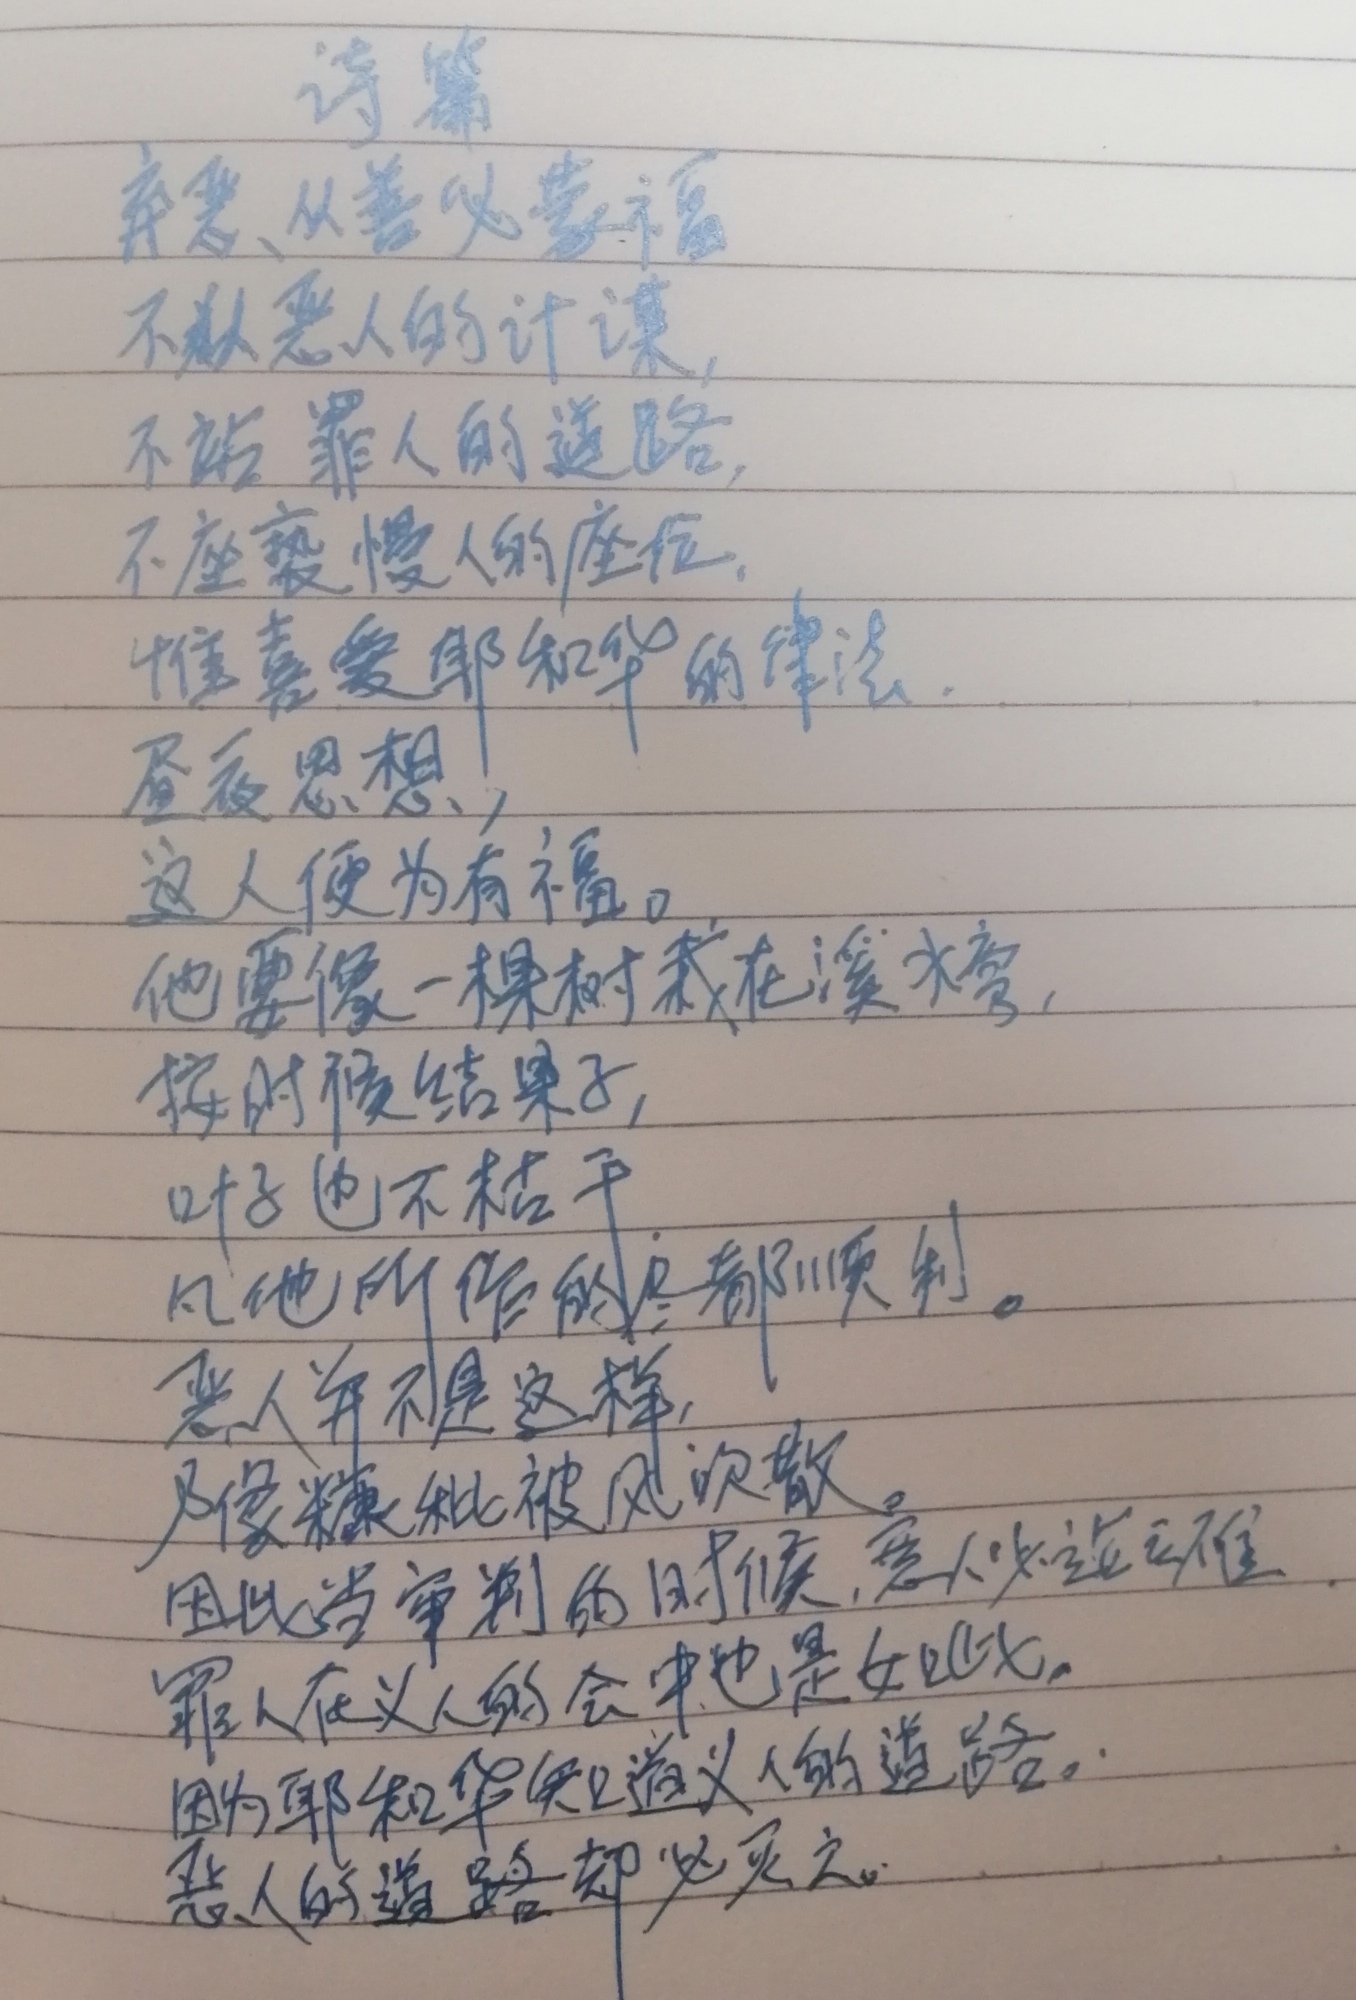 诗篇
弃恶从善必蒙福
不从恶人的计谋，
不站罪人的道路，
不座亵慢人的座位，
惟喜爱耶和华的律法.
昼夜思想，
这人便为有福。
他要像一棵树栽在溪水旁，
按时候结果子，
叶子也不枯干
凡他所作的尽都顺利。
恶人并不是这样，
乃像糠秕被风吹散。
因此当审判的时候，恶人必站立不住.
罪人在义人的会中也是如此。
因为耶和华知道义人的道路。
恶人的道路却必灭亡。